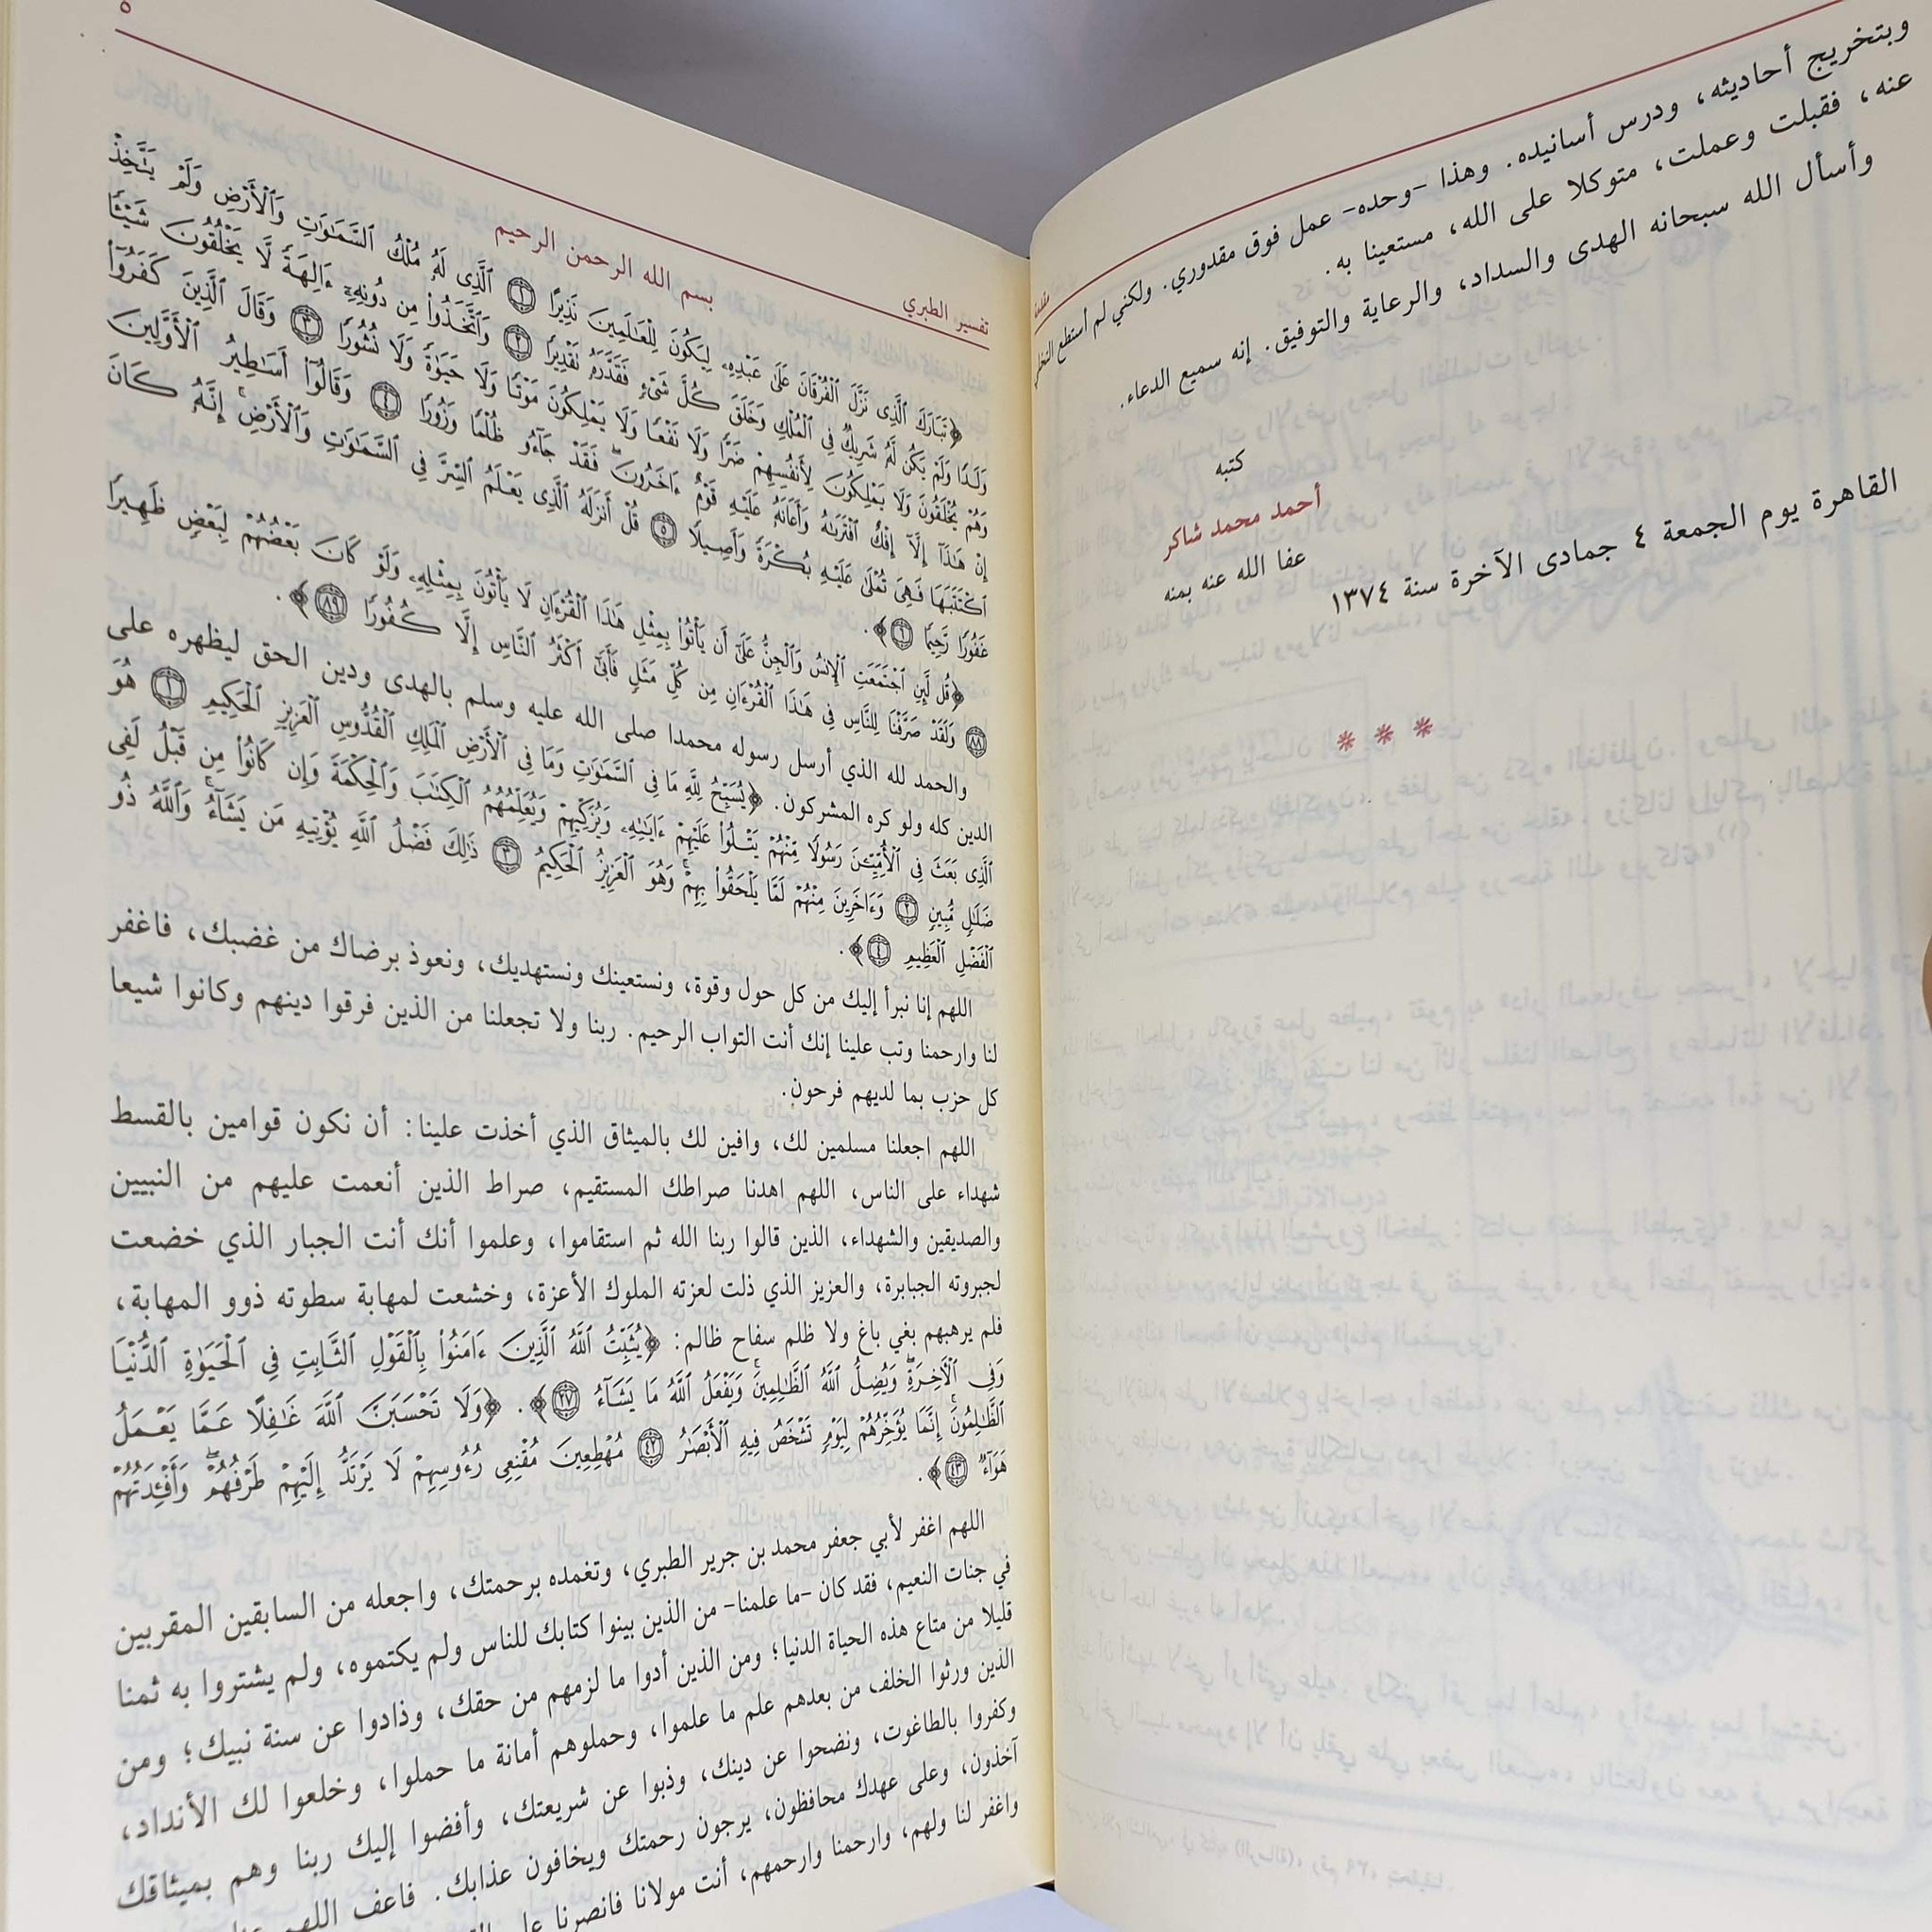 مقدمة
وبتخريج أحاديثه، ودرس أسانيده. وهذا -وحده- عمل فوق مقدوري. ولكني لم أستطع
عنه، فقبلت وعملت، متوكلا على الله، مستعينا به.
وأسأل الله سبحانه الهدى والسداد، والرعاية والتوفيق. إنه سميع الدعاء.
كتبه
أحمد محمد شاكر
عفا الله عنه بمنه
القاهرة يوم الجمعة ٤ جمادى الآخرة سنة ١٣٧٤
* * *
تفسير الطبري ٥
بسم الله الرحمن الرحيم
﴿تَبَارَكَ ٱلَّذِى نَزَّلَ ٱلْفُرْقَانَ عَلَىٰ عَبْدِهِۦ لِيَكُونَ لِلْعَـٰلَمِينَ نَذِيرًا ١ ٱلَّذِى لَهُۥ مُلْكُ ٱلسَّمَـٰوَٰتِ وَٱلْأَرْضِ وَلَمْ يَتَّخِذْ
وَلَدًا وَلَمْ يَكُن لَّهُۥ شَرِيكٌ فِى ٱلْمُلْكِ وَخَلَقَ كُلَّ شَىْءٍ فَقَدَّرَهُۥ تَقْدِيرًا ٢ وَٱتَّخَذُوا۟ مِن دُونِهِۦٓ ءَالِهَةً لَّا يَخْلُقُونَ شَيْـًٔا
وَهُمْ يُخْلَقُونَ وَلَا يَمْلِكُونَ لِأَنفُسِهِمْ ضَرًّا وَلَا نَفْعًا وَلَا يَمْلِكُونَ مَوْتًا وَلَا حَيَوٰةً وَلَا نُشُورًا ٣ وَقَالَ ٱلَّذِينَ كَفَرُوٓا۟
إِنْ هَـٰذَآ إِلَّآ إِفْكٌ ٱفْتَرَىٰهُ وَأَعَانَهُۥ عَلَيْهِ قَوْمٌ ءَاخَرُونَ ۖ فَقَدْ جَآءُو ظُلْمًا وَزُورًا ٤ وَقَالُوٓا۟ أَسَـٰطِيرُ ٱلْأَوَّلِينَ
ٱكْتَتَبَهَا فَهِىَ تُمْلَىٰ عَلَيْهِ بُكْرَةً وَأَصِيلًا ٥ قُلْ أَنزَلَهُ ٱلَّذِى يَعْلَمُ ٱلسِّرَّ فِى ٱلسَّمَـٰوَٰتِ وَٱلْأَرْضِ ۚ إِنَّهُۥ كَانَ
غَفُورًا رَّحِيمًا ٦﴾.
﴿قُل لَّئِنِ ٱجْتَمَعَتِ ٱلْإِنسُ وَٱلْجِنُّ عَلَىٰٓ أَن يَأْتُوا۟ بِمِثْلِ هَـٰذَا ٱلْقُرْءَانِ لَا يَأْتُونَ بِمِثْلِهِۦ وَلَوْ كَانَ بَعْضُهُمْ لِبَعْضٍ ظَهِيرًا
٨٨ وَلَقَدْ صَرَّفْنَا لِلنَّاسِ فِى هَـٰذَا ٱلْقُرْءَانِ مِن كُلِّ مَثَلٍ فَأَبَىٰٓ أَكْثَرُ ٱلنَّاسِ إِلَّا كُفُورًا ٨٩﴾.
والحمد لله الذي أرسل رسوله محمدا صلى الله عليه وسلم بالهدى ودين الحق ليظهره على
الدين كله ولو كره المشركون. ﴿يُسَبِّحُ لِلَّهِ مَا فِى ٱلسَّمَـٰوَٰتِ وَمَا فِى ٱلْأَرْضِ ٱلْمَلِكِ ٱلْقُدُّوسِ ٱلْعَزِيزِ ٱلْحَكِيمِ ١ هُوَ
ٱلَّذِى بَعَثَ فِى ٱلْأُمِّيِّـۧنَ رَسُولًا مِّنْهُمْ يَتْلُوا۟ عَلَيْهِمْ ءَايَـٰتِهِۦ وَيُزَكِّيهِمْ وَيُعَلِّمُهُمُ ٱلْكِتَـٰبَ وَٱلْحِكْمَةَ وَإِن كَانُوا۟ مِن قَبْلُ لَفِى
ضَلَـٰلٍ مُّبِينٍ ٢ وَءَاخَرِينَ مِنْهُمْ لَمَّا يَلْحَقُوا۟ بِهِمْ ۚ وَهُوَ ٱلْعَزِيزُ ٱلْحَكِيمُ ٣ ذَٰلِكَ فَضْلُ ٱللَّهِ يُؤْتِيهِ مَن يَشَآءُ ۚ وَٱللَّهُ ذُو
ٱلْفَضْلِ ٱلْعَظِيمِ ٤﴾.
اللهم إنا نبرأ إليك من كل حول وقوة، ونستعينك ونستهديك، ونعوذ برضاك من غضبك، فاغفر
لنا وارحمنا وتب علينا إنك أنت التواب الرحيم. ربنا ولا تجعلنا من الذين فرقوا دينهم وكانوا شيعا
كل حزب بما لديهم فرحون.
اللهم اجعلنا مسلمين لك، وافين لك بالميثاق الذي أخذت علينا: أن نكون قوامين بالقسط
شهداء على الناس، اللهم اهدنا صراطك المستقيم، صراط الذين أنعمت عليهم من النبيين
والصديقين والشهداء، الذين قالوا ربنا الله ثم استقاموا، وعلموا أنك أنت الجبار الذي خضعت
لجبروته الجبابرة، والعزيز الذي ذلت لعزته الملوك الأعزة، وخشعت لمهابة سطوته ذوو المهابة،
فلم يرهبهم بغي باغ ولا ظلم سفاح ظالم: ﴿يُثَبِّتُ ٱللَّهُ ٱلَّذِينَ ءَامَنُوا۟ بِٱلْقَوْلِ ٱلثَّابِتِ فِى ٱلْحَيَوٰةِ ٱلدُّنْيَا
وَفِى ٱلْـَٔاخِرَةِ ۖ وَيُضِلُّ ٱللَّهُ ٱلظَّـٰلِمِينَ ۚ وَيَفْعَلُ ٱللَّهُ مَا يَشَآءُ ٢٧﴾. ﴿وَلَا تَحْسَبَنَّ ٱللَّهَ غَـٰفِلًا عَمَّا يَعْمَلُ
ٱلظَّـٰلِمُونَ ۚ إِنَّمَا يُؤَخِّرُهُمْ لِيَوْمٍ تَشْخَصُ فِيهِ ٱلْأَبْصَـٰرُ ٤٢ مُهْطِعِينَ مُقْنِعِى رُءُوسِهِمْ لَا يَرْتَدُّ إِلَيْهِمْ طَرْفُهُمْ ۖ وَأَفْـِٔدَتُهُمْ
هَوَآءٌ ٤٣﴾.
اللهم اغفر لأبي جعفر محمد بن جرير الطبري، وتغمده برحمتك، واجعله من السابقين المقربين
في جنات النعيم، فقد كان -ما علمنا- من الذين بينوا كتابك للناس ولم يكتموه، ولم يشتروا به ثمنا
قليلا من متاع هذه الحياة الدنيا؛ ومن الذين أدوا ما لزمهم من حقك، وذادوا عن سنة نبيك؛ ومن
الذين ورثوا الخلف من بعدهم علم ما علموا، وحملوهم أمانة ما حملوا، وخلعوا لك الأنداد،
وكفروا بالطاغوت، ونضحوا عن دينك، وذبوا عن شريعتك، وأفضوا إليك ربنا وهم بميثاقك
آخذون، وعلى عهدك محافظون، يرجون رحمتك ويخافون عذابك. فاعف اللهم
واغفر لنا ولهم، وارحمنا وارحمهم، أنت مولانا فانصرنا